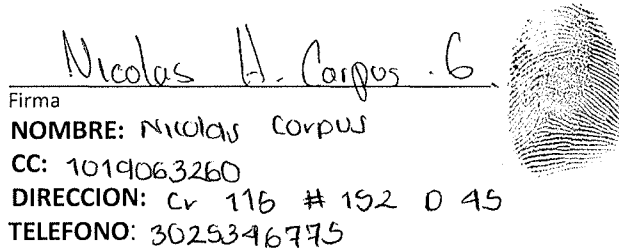 Nicolas H. Corpus . G.
Firma
NOMBRE: Nicolas Corpus
CC: 1019063260
DIRECCION: Cr 116 # 152 D 45
TELEFONO: 3025346775